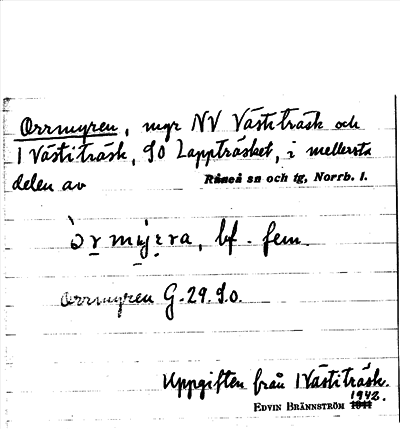 Orrmyren, myr NV Västiträsk och
1 Västiträsk, SO Lappträsket, i mellersta
delen av Råneå sn och tg, Norrb. l.
òr mýrra, bf. fem.
Orrmyren G.29.S.o.
Uppgiften från 1 Västiträsk.
1942.
EDVIN BRÄNNSTRÖM 1941